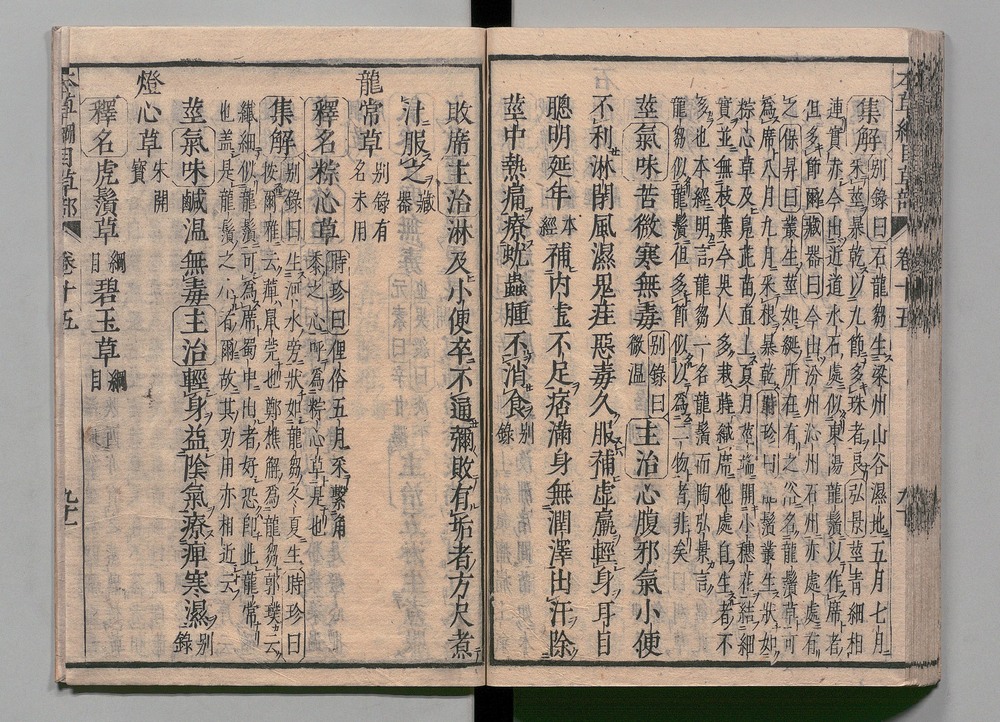 本草綱目草部 卷十五
集解 别錄曰石龍芻生梁州山谷濕地五月七月
采莖暴乾以九節多珠者良弘景曰莖青細相
連實赤今出近道水石處似東陽龍鬚以作席者
但多節爾藏器曰今出汾州沁州石州亦處處有
之保昇曰叢生莖如綖所在有之俗名龍鬚草可
為席八月九月采根暴乾時珍曰龍鬚叢生狀如
粽心草及鳧茈苗直上夏月莖端開小穗花結細
實並無枝葉今吳人多栽蒔織席他處自生者不
多也本經明言龍芻一名龍鬚而陶弘景言
龍芻似龍鬚但多節似以為二物者非矣
莖氣味苦微寒無毒 别錄曰微温 主治心腹邪氣小便
不利淋閉風濕鬼疰惡毒久服補虛羸輕身耳目
聰明延年 本經 補内虛不足痞滿身無潤澤出汗除
莖中熱痛療蚘蟲腫不消食 别錄
敗席主治淋及小便卒不通彌敗有垢者方尺煮
汁服之 藏器
龍常草 别錄有名未用
釋名粽心草 時珍曰俚俗五月采繫角黍之心呼為粽心草是也
集解 别錄曰生河水旁狀如龍芻冬夏生時珍曰
按爾雅云䔞鼠莞也鄭樵解為龍芻郭璞云
纖細似龍鬚可為席蜀中出者好恐即此龍常
也盖是龍鬚之小者爾故其功用亦相近云
莖氣味鹹温無毒主治輕身益陰氣療痺寒濕 别錄
燈心草 宋開寶
釋名虎鬚草 綱目 碧玉草 綱目
本草綱目草部 卷十五 九十一